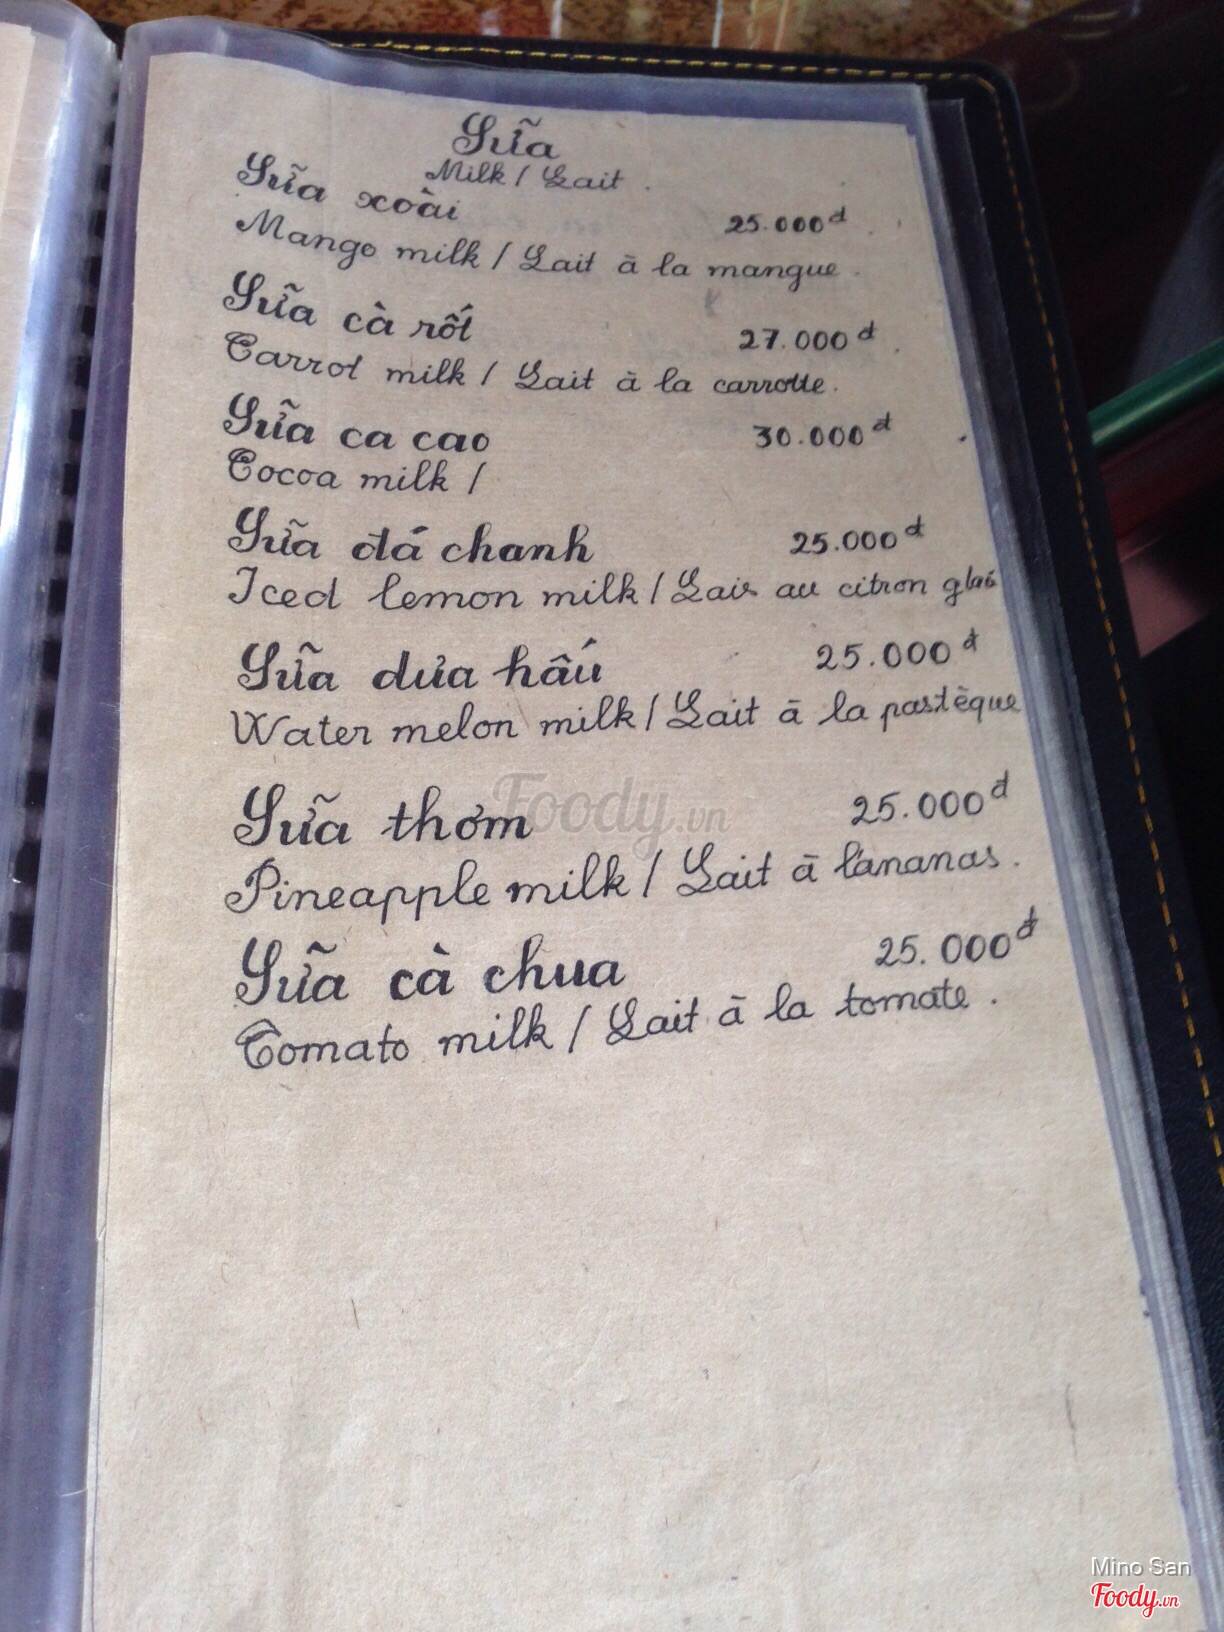 Sữa
Milk / Lait .
Sữa xoài 25.000đ
Mango milk / Lait à la mangue .
Sữa cà rốt 27.000đ
Carrot milk / Lait à la carrotte .
Sữa ca cao 30.000đ
Cocoa milk /
Sữa đá chanh 25.000đ
Iced lemon milk / au citron
Sữa dưa hấu 25.000đ
Water melon milk / Lait à la pastèque
Foody.vn
Sữa thơm 25.000đ
Pineapple milk / Lait à l'ananas .
Sữa cà chua 25.000đ
Tomato milk / Lait à la tomate .
Mino San
Foody.vn